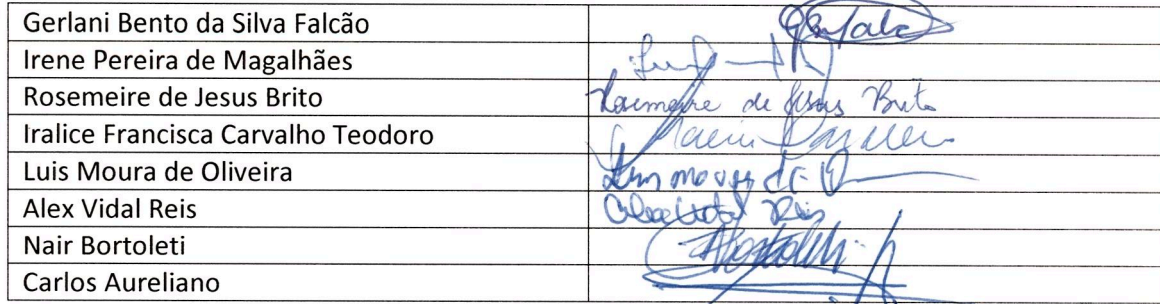 Gerlani Bento da Silva Falcão
Irene Pereira de Magalhães
Rosemeire de Jesus Brito Rosemeire de Jesus Brito
Iralice Francisca Carvalho Teodoro
Luis Moura de Oliveira
Alex Vidal Reis Alex Vidal Reis
Nair Bortoleti
Carlos Aureliano